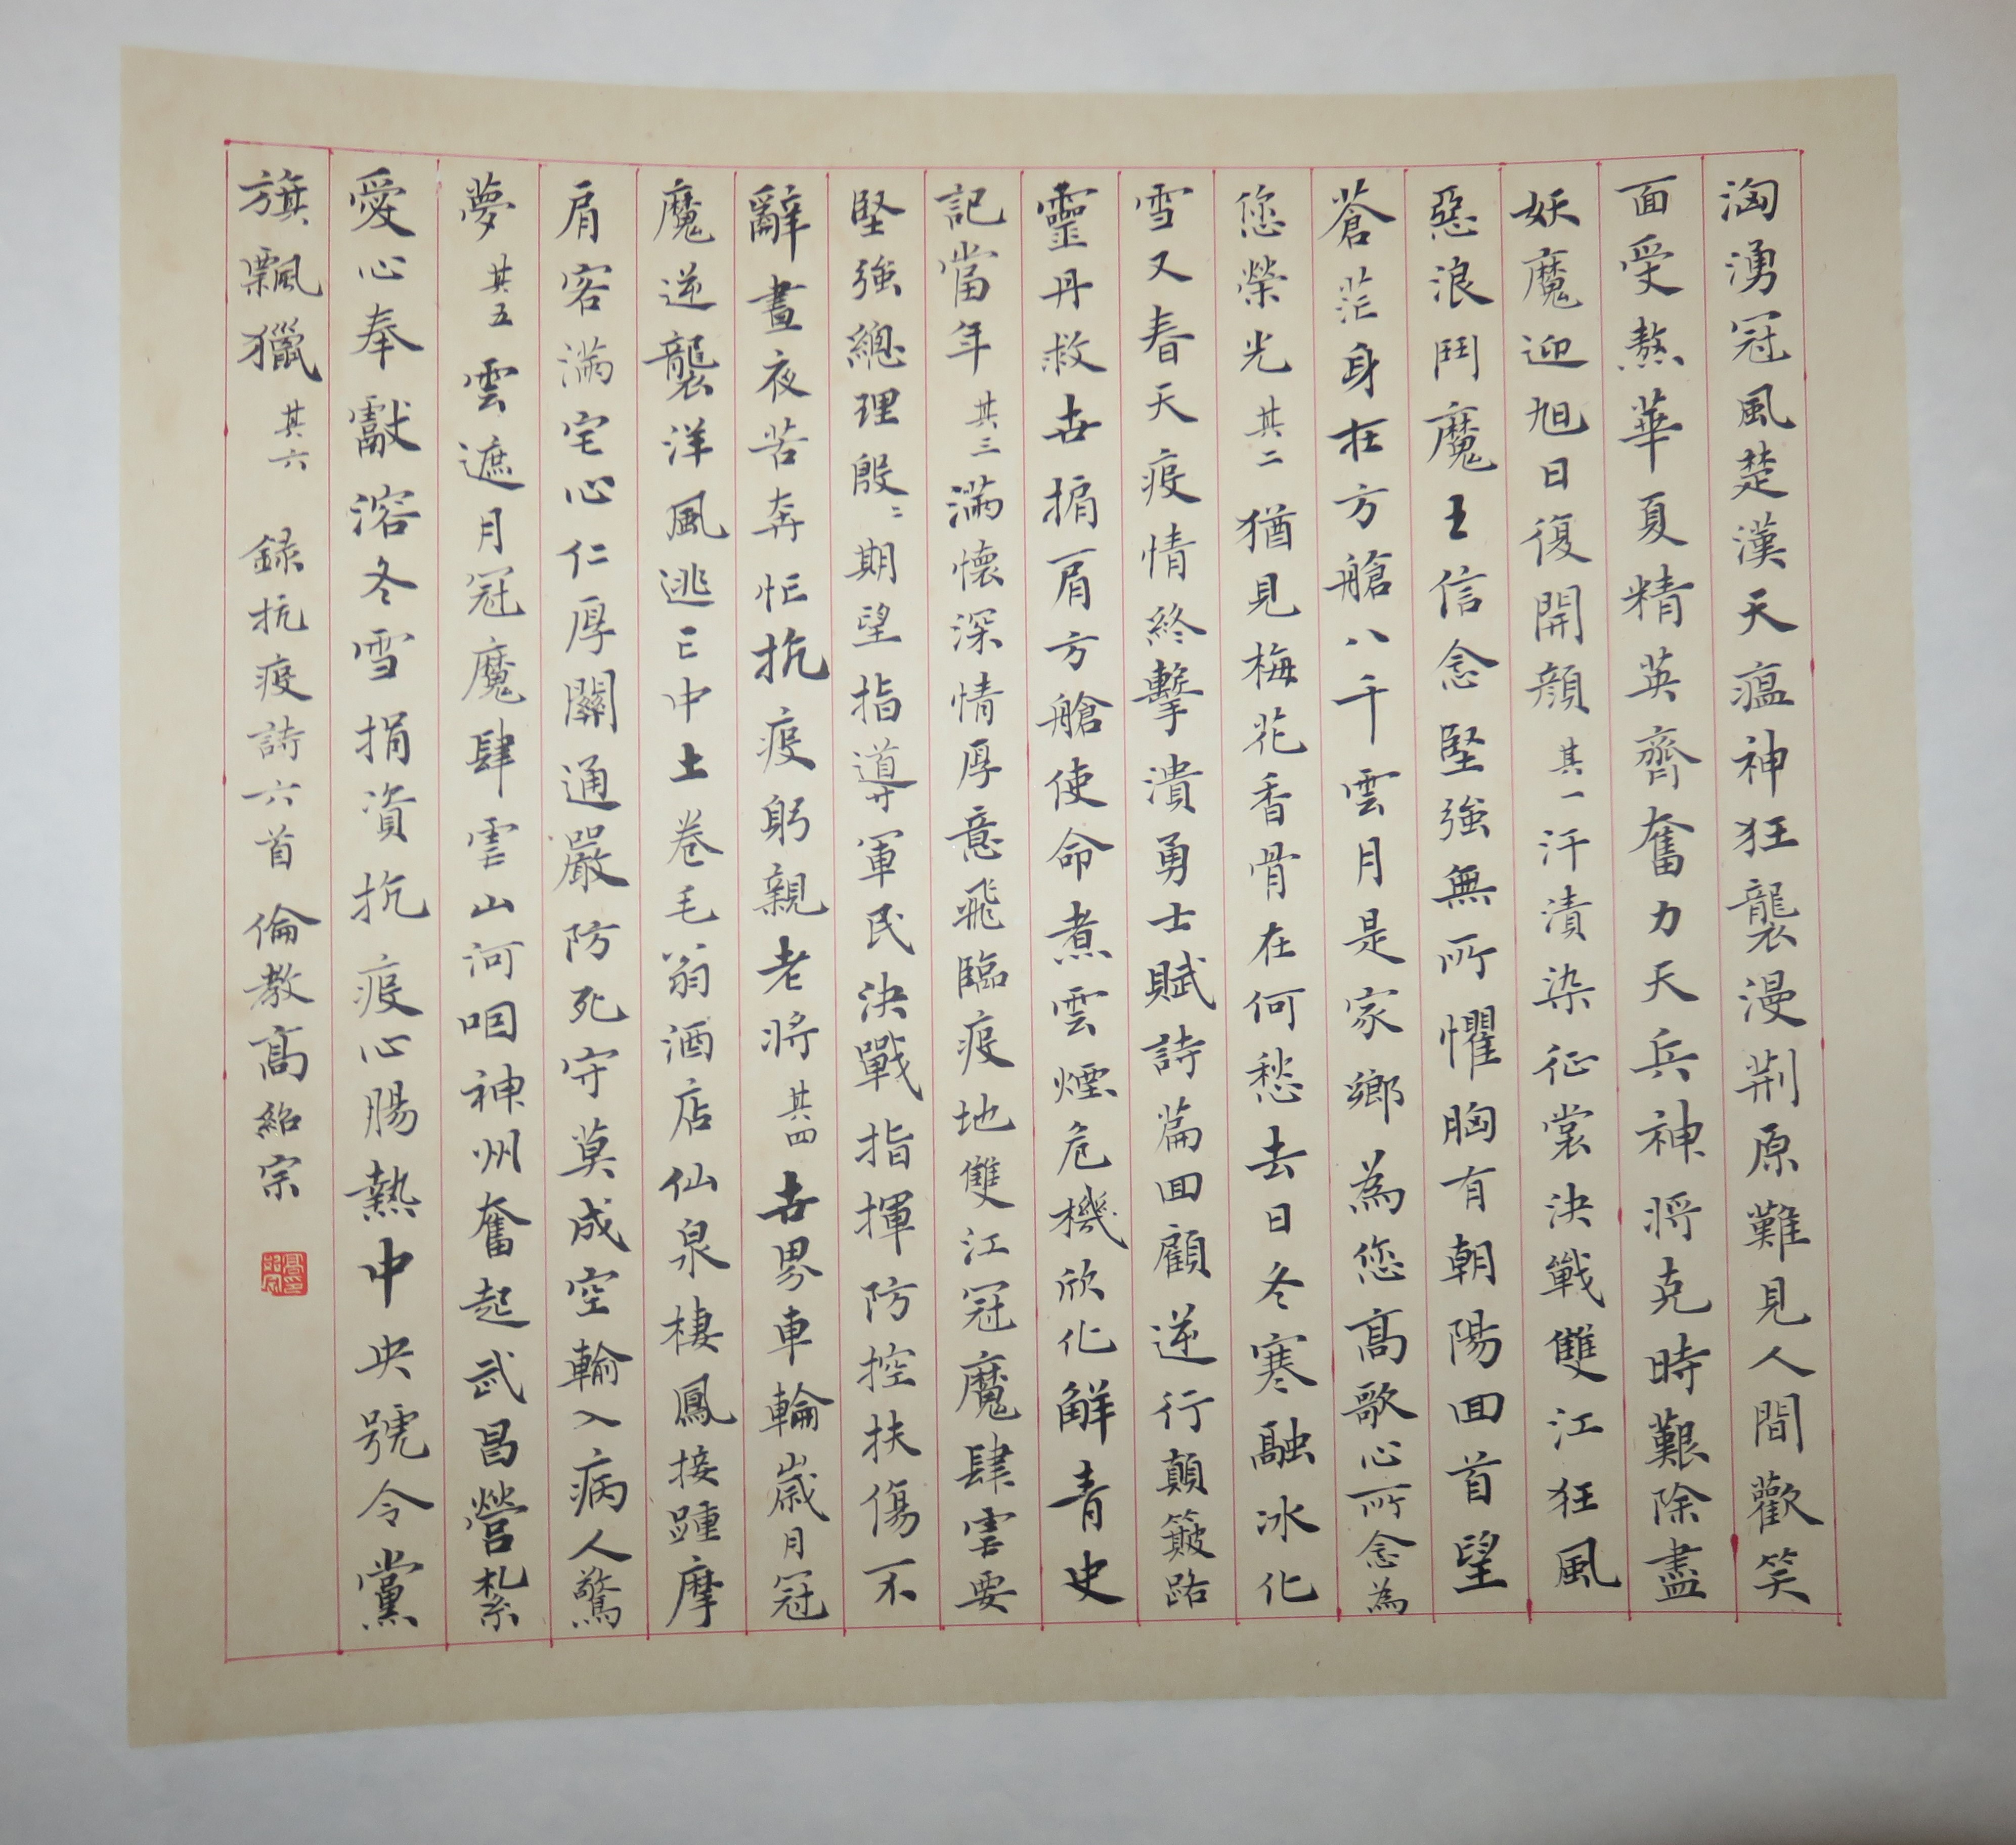 洶湧冠風楚漢天瘟神狂襲漫荆原難見人間歡笑
面受熬華夏精英齊奮力天兵神將克時艱除盡
妖魔迎旭日復開顔其一汗漬染征裳決戰雙江狂風
惡浪鬥魔王信念堅強無所懼胸有朝陽回首望
蒼茫身在方艙八千雲月是家鄉為您高歌心所念為
您榮光其二猶見梅花香骨在何愁去日冬寒融冰化
雪又春天疫情終擊潰勇士賦詩篇回顧逆行顛簸路
靈丹救世捐肩方艙使命煮雲煙危機欣化解青史
記當年其三滿懷深情厚意飛臨疫地雙江冠魔肆虐要
堅強總理殷〻期望指導軍民決戰指揮防控扶傷不
辭晝夜苦奔忙抗疫躬親老將其四世界車輪歲月冠
魔逆襲洋風逃亡中土卷毛翁酒店仙泉棲鳳接踵摩
肩客滿宅心仁厚關通嚴防死守莫成空輸入病人驚
夢其五雲遮月冠魔肆虐山河咽神州奮起武昌營紮
愛心奉獻溶冬雪捐資抗疫心腸熱中央號令黨
旗飄獵其六 録抗疫詩六首倫教高紹宗